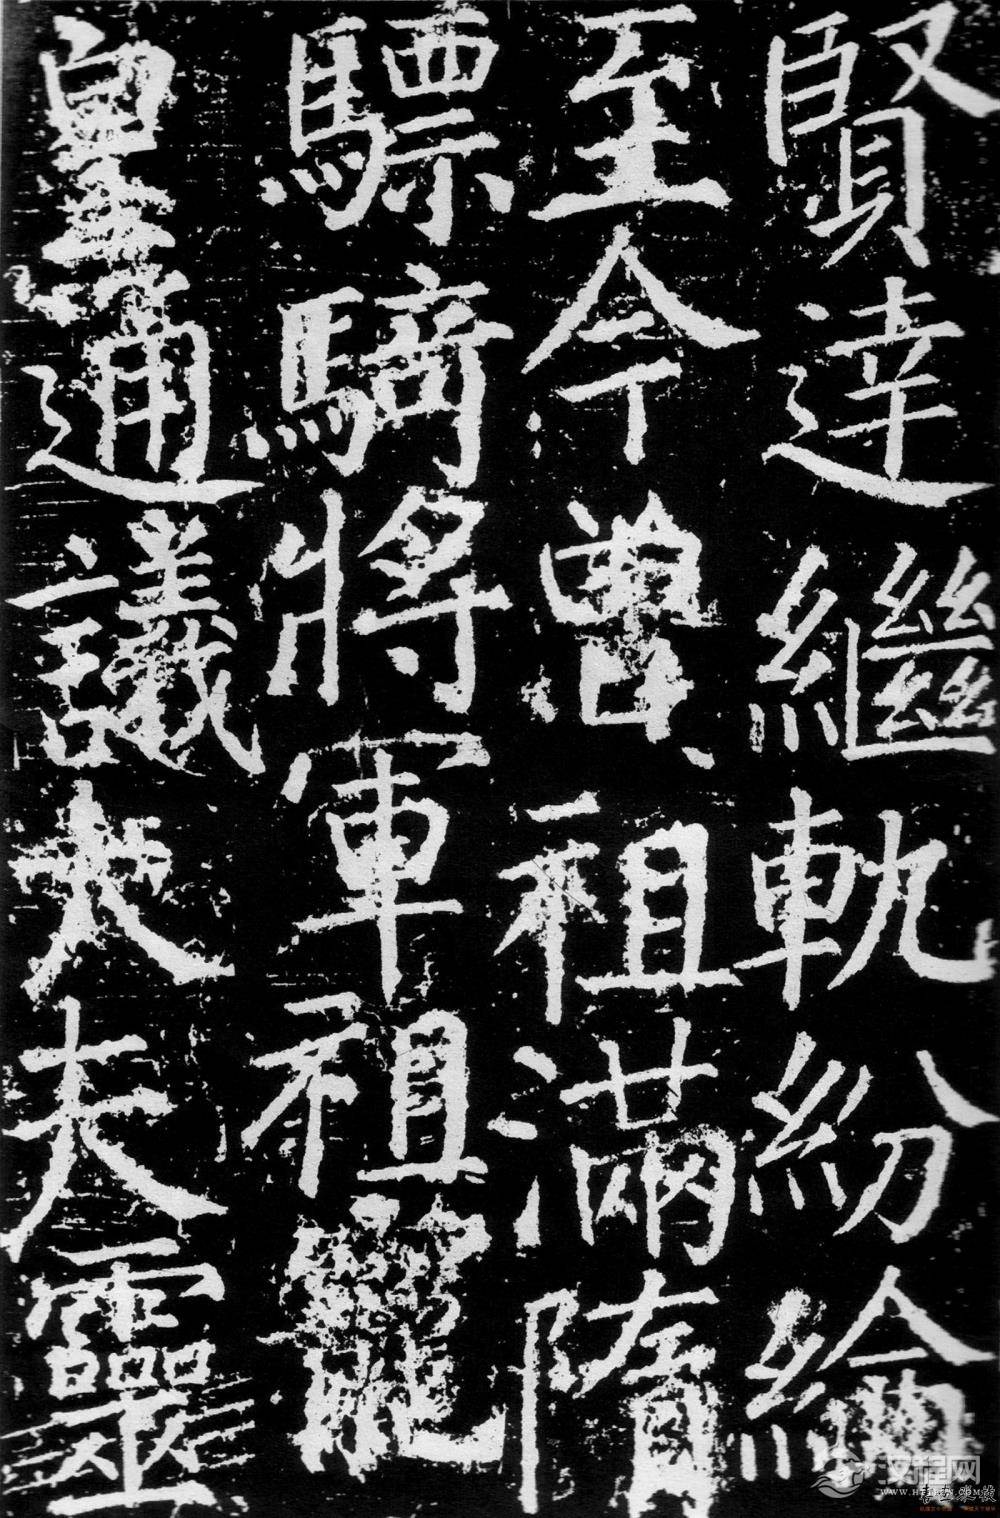 賢達繼軌紛綸
至今曾祖滿隋
驃騎將軍祖寵
皇通議大夫靈
汉程网
WWW.HTTPCN.COM